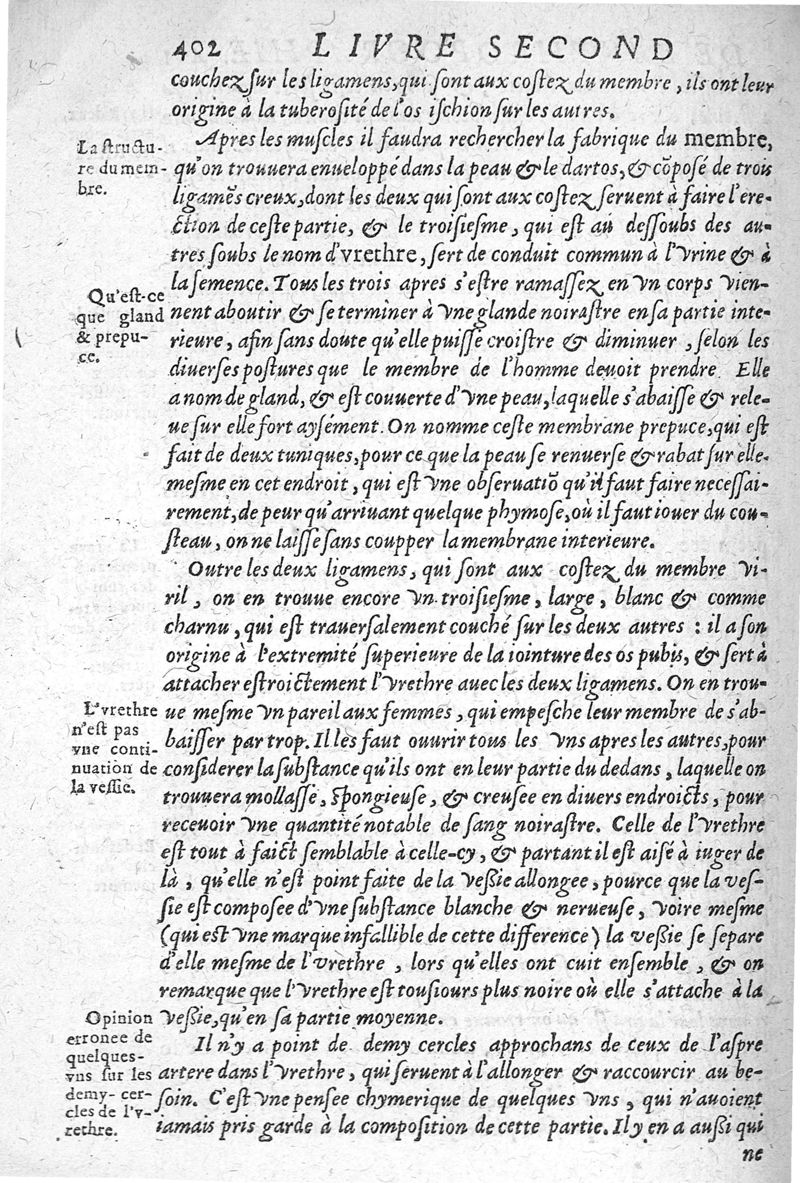 402 LIVRE SECOND
couchez sur les ligamens, qui sont aux costez du membre, ils ont leur
origine à la tuberosité de l'os ischion sur les autres.
La structu-
re du mem-
bre.
Apres les muscles il faudra rechercher la fabrique du membre,
qu'on trouuera enueloppé dans la peau & le dartos, & cõposé de trois
ligamẽs creux, dont les deux qui sont aux costez seruent à faire l'ere-
ction de ceste partie, & le troisiesme, qui est au dessoubs des au-
tres soubs le nom d'vrethre, sert de conduit commun à l'vrine & à
la semence. Tous les trois apres s'estre ramassez en vn corps vien-
Qu'est-ce
que gland
& prepu-
ce.
nent aboutir & se terminer à vne glande noirastre en sa partie inte-
rieure, afin sans doute qu'elle puisse croistre & diminuer, selon les
diuerses postures que le membre de l'homme deuoit prendre. Elle
a nom de gland, & est couuerte d'vne peau, laquelle s'abaisse & rele-
ue sur elle fort aysément. On nomme ceste membrane prepuce, qui est
fait de deux tuniques, pour ce que la peau se renuerse & rabat sur elle-
mesme en cet endroit, qui est vne obseruatiõ qu'il faut faire necessai-
rement, de peur qu'arriuant quelque phymose, où il faut iouer du cou-
steau, on ne laisse sans coupper la membrane interieure.
Outre les deux ligamens, qui sont aux costez du membre vi-
ril, on en trouue encore vn troisiesme, large, blanc & comme
charnu, qui est trauersalement couché sur les deux autres : il a son
origine à l'extremité superieure de la iointure des os pubis, & sert à
attacher estroictement l'vrethre auec les deux ligamens. On en trou-
L'vrethre
n'est pas
vne conti-
nuation de
la vessie.
ue mesme vn pareil aux femmes, qui empesche leur membre de s'ab-
baisser par trop. Il les faut ouurir tous les vns apres les autres, pour
considerer la substance qu'ils ont en leur partie du dedans, laquelle on
trouuera mollasse, spongieuse, & creusee en diuers endroicts, pour
receuoir vne quantité notable de sang noirastre. Celle de l'vrethre
est tout à faict semblable à celle-cy, & partant il est aisé à iuger de
là, qu'elle n'est point faite de la vessie allongee, pource que la ves-
sie est composee d'vne substance blanche & nerueuse, voire mesme
(qui est vne marque infallible de cette difference) la vessie se separe
d'elle mesme de l'vrethre, lors qu'elles ont cuit ensemble, & on
remarque que l'vrethre est tousiours plus noire où elle s'attache à la
vessie, qu'en sa partie moyenne.
Opinion
erronee de
quelques-
vns sur les
demy-cer-
cles de l'v-
rethre.
Il n'y a point de demy cercles approchans de ceux de l'aspre
artere dans l'vrethre, qui seruent à l'allonger & raccourcir au be-
soin. C'est vne pensee chymerique de quelques vns, qui n'auoient
iamais pris garde à la composition de cette partie. Il y en a aussi qui
ne